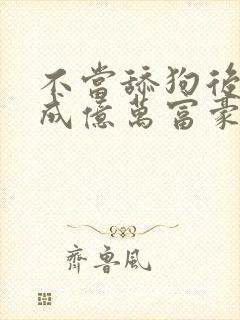 不當舔狗後
成億萬富豪
齊魯風